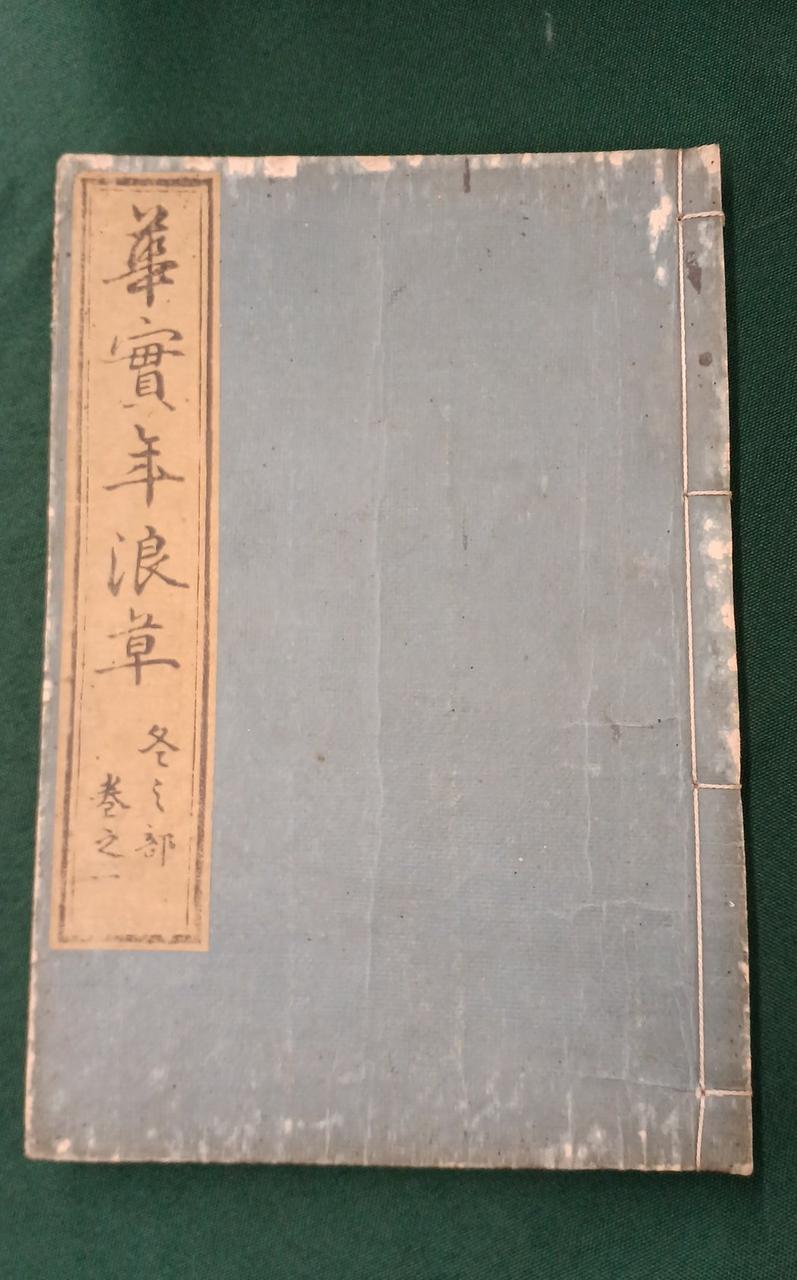 華實年浪草
冬之部
巻之一